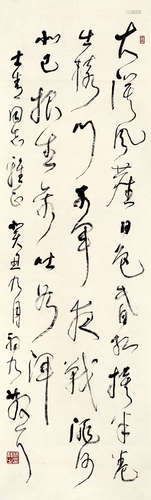 大漠风尘日色昏红旗半卷
出辕门前军夜战洮河
北已报生禽吐谷浑
士青同志雅正 癸丑九月初九 散耳